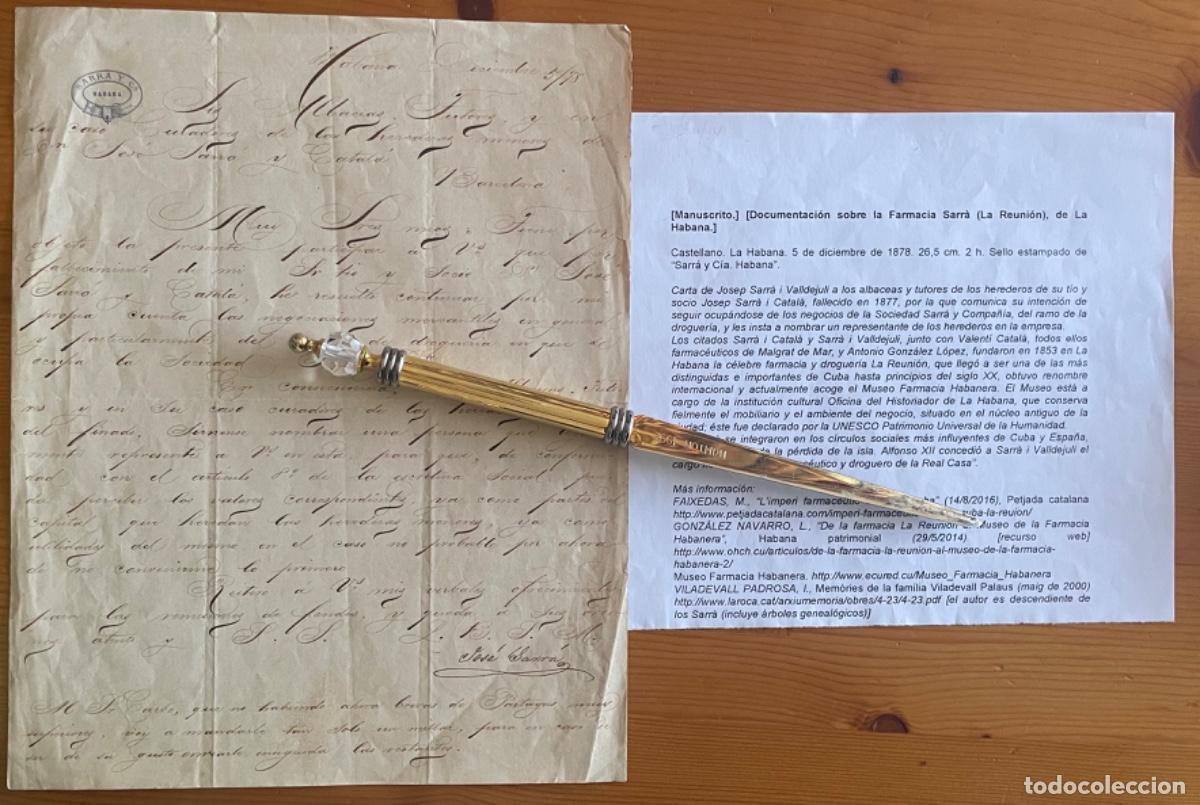 SARRÁ Y Cª
HABANA
Habana Diciembre 5/78
Sres Albaceas, Tutores, y en
su caso curadores de los herederos menores de
Dn José Sarrá y Catalá
Barcelona
Muy Sres mios: Tiene por
objeto la presente participar a Vs que por
fallecimiento de mi Sr tio y Socio Dn José
Sarrá y Catalá, he resuelto continuar por mi
propia cuenta las negociaciones mercantiles en general
y particularmente de drogueria en que se
ocupa la Sociedad
En
res y en su caso curadores de los
del finado, sirvanse nombrar una persona que
mente represente a Vs en esta para que, de conformi
dad con el articulo 8º de la escritura Social
de percibir los valores correspondientes ya como parte del
capital que heredan los herederos menores, ya como
utilidades del mismo en el caso no probable por ahora
de no convenirme lo primero
Reitero a Vs mis
para las remisiones de fondos y queda de Vs
mas atento y S. S. Q. B. S. M.
José Sarrá
M. Sr Carbó, que no habiendo ahora brevas de Partagas muy
superiores, voy a mandarle tan solo un millar, para en caso
de su gusto enviarle enseguida las restantes.
[Manuscrito.] [Documentación sobre la Farmacia Sarrà (La Reunión), de La
Habana.]
Castellano. La Habana. 5 de diciembre de 1878. 26,5 cm. 2 h. Sello estampado de
"Sarrá y Cía. Habana".
Carta de Josep Sarrà i Valldejuli a los albaceas y tutores de los herederos de su tío y
socio Josep Sarrà i Català, fallecido en 1877, por la que comunica su intención de
seguir ocupándose de los negocios de la Sociedad Sarrà y Compañía, del ramo de la
droguería, y les insta a nombrar un representante de los herederos en la empresa.
Los citados Sarrà i Català y Sarrà i Valldejuli, junto con Valentí Català, todos ellos
farmacéuticos de Malgrat de Mar, y Antonio González López, fundaron en 1853 en La
Habana la célebre farmacia y droguería La Reunión, que llegó a ser una de las más
distinguidas e importantes de Cuba hasta principios del siglo XX, obtuvo renombre
internacional y actualmente acoge el Museo Farmacia Habanera. El Museo está a
cargo de la institución cultural Oficina del Historiador de La Habana, que conserva
fielmente el mobiliario y el ambiente del negocio, situado en el núcleo antiguo de la
ciudad; éste fue declarado por la UNESCO Patrimonio Universal de la Humanidad.
se integraron en los círculos sociales más influyentes de Cuba y España,
de la pérdida de la isla. Alfonso XII concedió a Sarrà i Valldejuli el
cargo y droguero de la Real Casa".
Más información:
FAIXEDAS, M., "L'imperi (14/8/2016), Petjada catalana
http://www.petjadacatalana.com/imperi-farmace
GONZÁLEZ NAVARRO, L., "De la farmacia La Reunión Museo de la Farmacia
Habanera", Habana patrimonial (29/5/2014) [recurso web]
http://www.ohch.cu/articulos/de-la-farmacia-la-reunion-al-museo-de-la-farmacia-
habanera-2/
Museo Farmacia Habanera. http://www.ecured.cu/Museo_Farmacia_Habanera
VILADEVALL PADROSA, I., Memòries de la família Viladevall Palaus (maig de 2000)
http://www.laroca.cat/arxiumemoria/obres/4-23/4-23.pdf [el autor es descendiente de
los Sarrà (incluye árboles genealógicos)]
todocoleccion